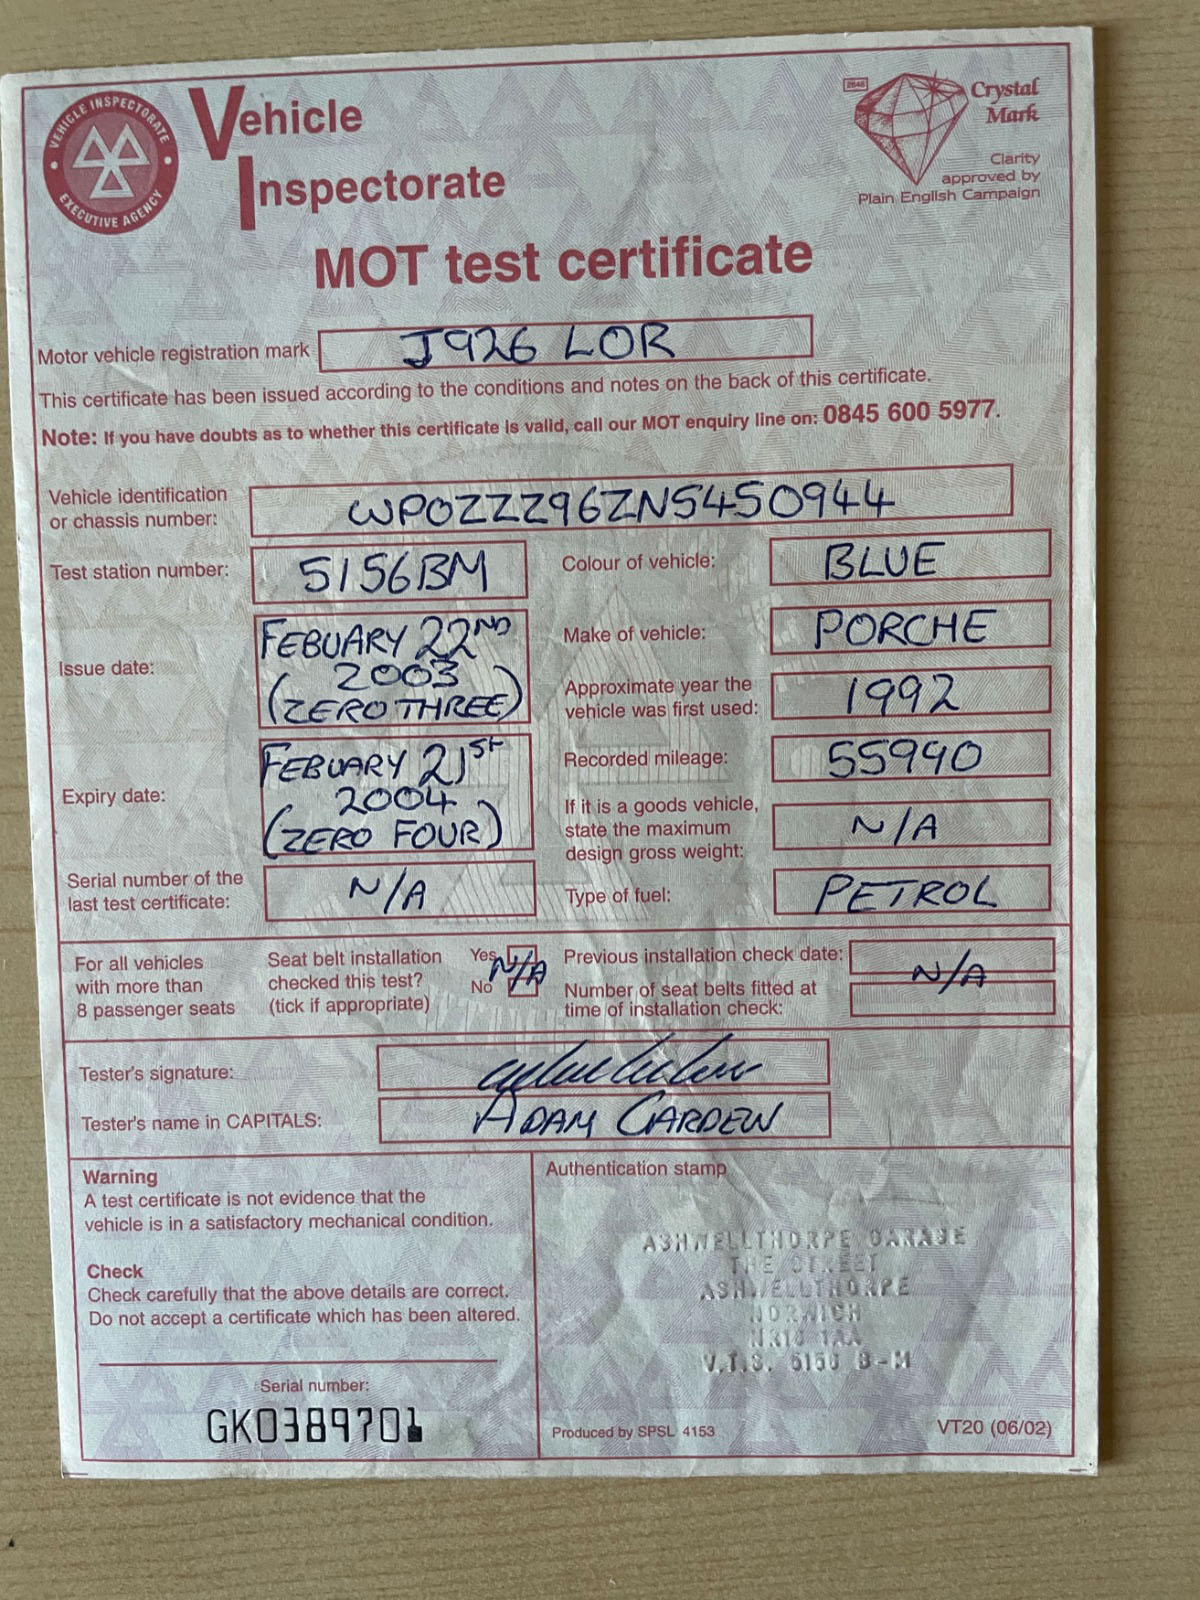 VEHICLE INSPECTORATE
EXECUTIVE AGENCY
Vehicle
Inspectorate
2646
Crystal
Mark
Clarity
approved by
Plain English Campaign
MOT test certificate
Motor vehicle registration mark J926 LOR
This certificate has been issued according to the conditions and notes on the back of this certificate.
Note: If you have doubts as to whether this certificate is valid, call our MOT enquiry line on: 0845 600 5977.
Vehicle identification
or chassis number:
WP0ZZZ96ZNS450944
Test station number:
5156BM
Colour of vehicle:
BLUE
Issue date:
FEBUARY 22ND
2003
(ZERO THREE)
Make of vehicle:
PORCHE
Approximate year the
vehicle was first used:
1992
Expiry date:
FEBUARY 21St
2004
(ZERO FOUR)
Recorded mileage:
55940
If it is a goods vehicle,
state the maximum
design gross weight:
N/A
Serial number of the
last test certificate:
N/A
Type of fuel:
PETROL
For all vehicles
with more than
8 passenger seats
Seat belt installation
checked this test?
(tick if appropriate)
Yes
No
N/A
Previous installation check date:
Number of seat belts fitted at
time of installation check:
N/A
Tester's signature:
Tester's name in CAPITALS:
ADAM CARDEW
Warning
A test certificate is not evidence that the
vehicle is in a satisfactory mechanical condition.
Check
Check carefully that the above details are correct.
Do not accept a certificate which has been altered.
Serial number:
GK0389701
Authentication stamp
ASHWELLTHORPE GARAGE
THE STREET
ASHWELLTHORPE
NORWICH
NR16 1AA
V.T.S. 5156 B-M
Produced by SPSL 4153
VT20 (06/02)